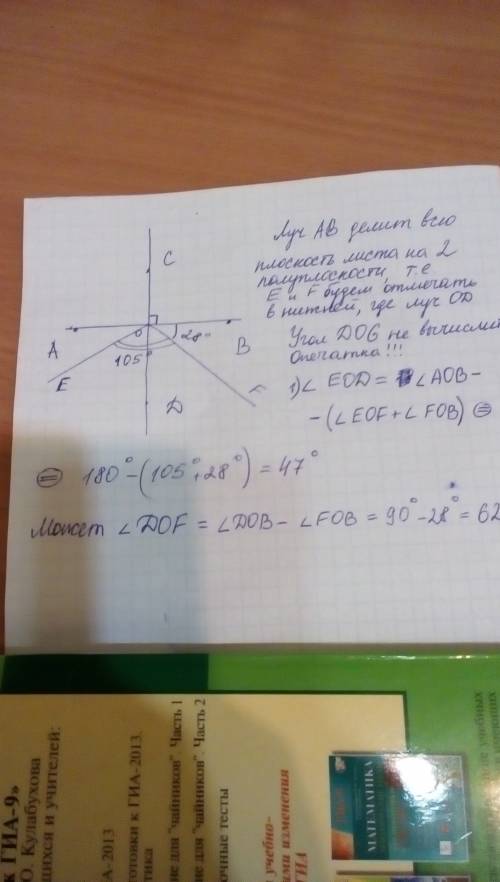 C
A
O
28°
B
E
105°
F
D
Луч AB делит всю
плоскость листа на 2
полуплоскости, т.е
E и F будем отмечать
в нижней, где луч OD
Угол DOG не вычислить
Опечатка!!!
1) ∠ EOD = ∠ AOB -
- (∠ EOF + ∠ FOB) =
= 180° - (105° + 28°) = 47°
Может ∠ DOF = ∠ DOB - ∠ FOB = 90° - 28° = 62
к ГИА-9»
Ю. Кулабухова
щихся и учителей:
ГИА-2013
отовки к ГИА-2013.
тика
ие для "чайников". Часть 1
ие для "чайников". Часть 2
очные тесты
и учебно-
ами изменения
ГИА
МАТЕМАТИКА
учебных